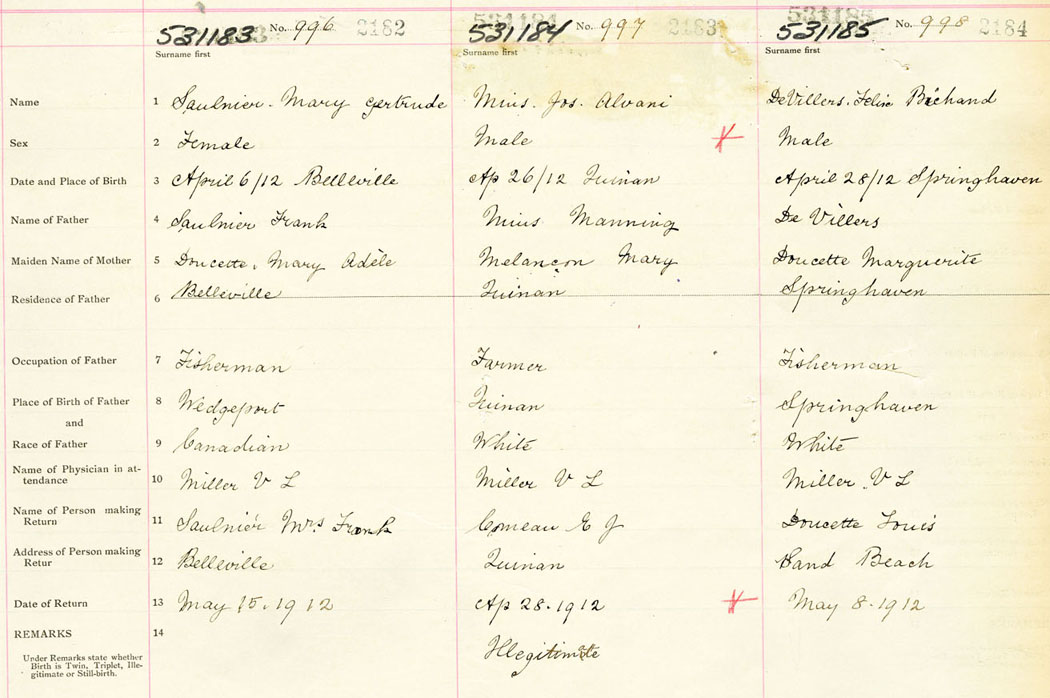 531183 No. 996 2182 531184 No. 997 2183 531185 No. 998 2184
Surname first Surname first Surname first
Name 1 Saulnier. Mary Gertrude Mius. Jos. Alvani DeVillers. Felix
Sex 2 Female Male Male
Date and Place of Birth 3 April 6/12 Belleville Ap 26/12 Quinan April 28/12 Springhaven
Name of Father 4 Saulnier Frank Mius Manning De Villers
Maiden Name of Mother 5 Doucette, Mary Adèle Melançon Mary Doucette Marguerite
Residence of Father 6 Belleville Quinan Springhaven
Occupation of Father 7 Fisherman Farmer Fisherman
Place of Birth of Father 8 Wedgeport Quinan Springhaven
and
Race of Father 9 Canadian White White
Name of Physician in at-
tendance 10 Miller V L Miller V L Miller V L
Name of Person making
Return 11 Saulnier Mrs Frank Comeau E J Doucette Louis
Address of Person making
Retur 12 Belleville Quinan Sand Beach
Date of Return 13 May 15.1912 Ap 28.1912 May 8.1912
REMARKS 14
Illegitimate
Under Remarks state whether
Birth is Twin, Triplet, Ille-
gitimate or Still-birth.